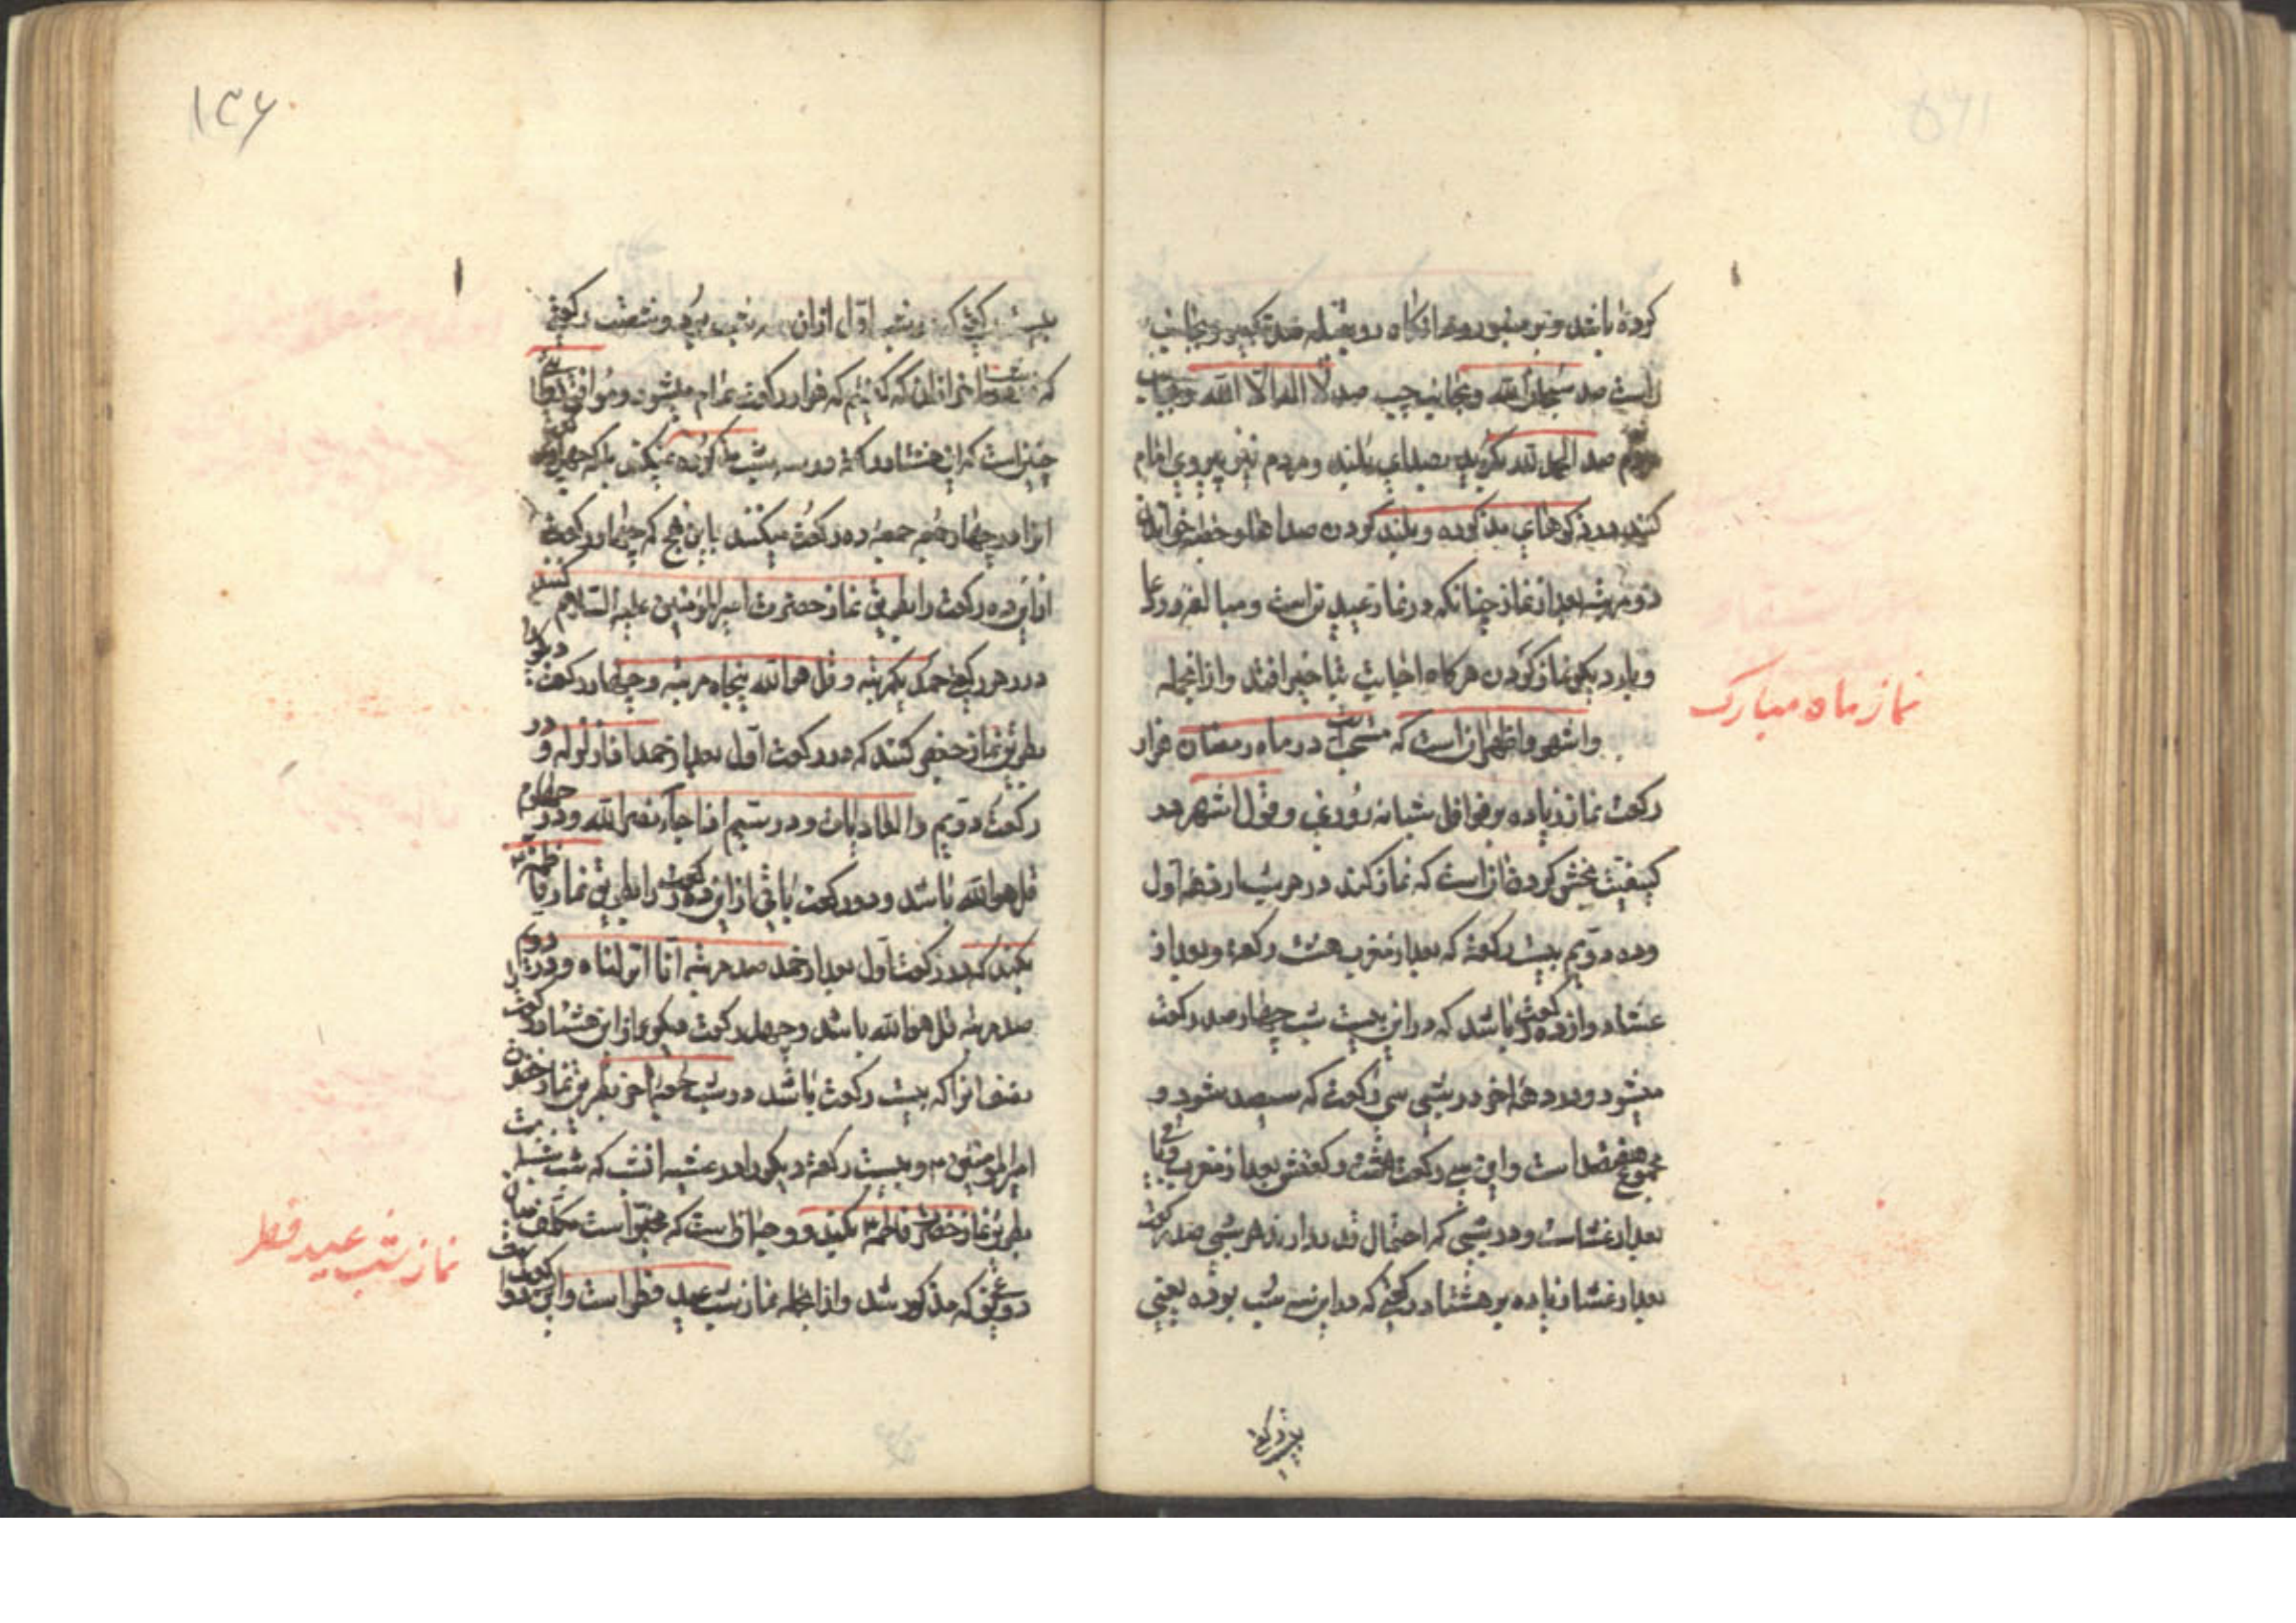 کرده باشد و بر منبر رود آنگاه رو بقبله صد تکبیر و بجانب
راست صد سبحان الله و بجانب چپ صد لا اله الا الله و بجانب
مردم صد الحمد لله بگوید بصدای بلند و مردم نیز پیروی امام
کنند در ذکرهای مذکوره و بلند کردن صداها و خطبه خواندن
دو مرتبه بعد از نماز چنانکه در نماز عیدین است و مبالغه در دعا
و بار دیگر نماز کردن هرگاه اجابت بتاخیر افتد و از آنجمله
نماز ماه مبارک
و اشهر و اظهر آنست که مستحب است در ماه رمضان هزار
رکعت نماز زیاده بر نوافل شبانه روزی و قول اشهر در
کیفیت بخش کردن آنست که نماز کند در هر شب از دهه اول
و دهه دویم بیست رکعت که بعد از مغرب هشت رکعت و بعد از
عشا دوازده رکعت باشد که در این بیست شب چهار صد رکعت
میشود و در دهه آخر در شبی سی رکعت که سیصد میشود و
مجموع هفتصد است و این سی رکعت هشت رکعتش بعد از مغرب و باقی
بعد از عشاست و در شبی که احتمال قدر دارد هر شبی صد رکعت
بعد از عشا زیاده بر هشتاد رکعتی که در این سه شب بوده یعنی
بیست رکعتی
۱۳۶
بیست رکعتی که در شب اول از آن سه شب بوده و شصت رکعتی
که در دو شب آخر از آن که گفتیم که هزار رکعت تمام میشود و موافق دعای
چنین است که این هشتاد رکعت در سه شب مذکوره نمیکند بلکه چهل رکعت
آنرا در چهار جمعه ده رکعت میکنند باین نهج که چهار رکعت
از این ده رکعت را بطریق نماز حضرت امیر المؤمنین علیه السلام کنند
در هر رکعتی حمد یکمرتبه و قل هو الله پنجاه مرتبه و چهار رکعت دیگر را
بطریق نماز جعفر کنند که در رکعت اول بعد از حمد اذا زلزله و در
رکعت دویم و العادیات و در سیم اذا جاء نصر الله و در چهارم
قل هو الله باشد و دو رکعت باقی از این ده رکعت را بطریق نماز فاطمه
بکنند که در رکعت اول بعد از حمد صد مرتبه انا انزلناه و در دویم
صد مرتبه قل هو الله باشد و چهل رکعت دیگر از این هشتاد رکعت
نصف آنرا که بیست رکعت باشد در شب جمعه آخر بطریق نماز حضرت
امیر المؤمنین ع و بیست رکعت دیگر را در عشیه آنست که شب شنبه است
بطریق نماز حضرت فاطمه ع بکنند و چنان است که مخیر است مکلف میان
دو طریق که مذکور شد و از آنجمله نماز شب عید فطر است و این دو رکعت است
نماز شب عید فطر